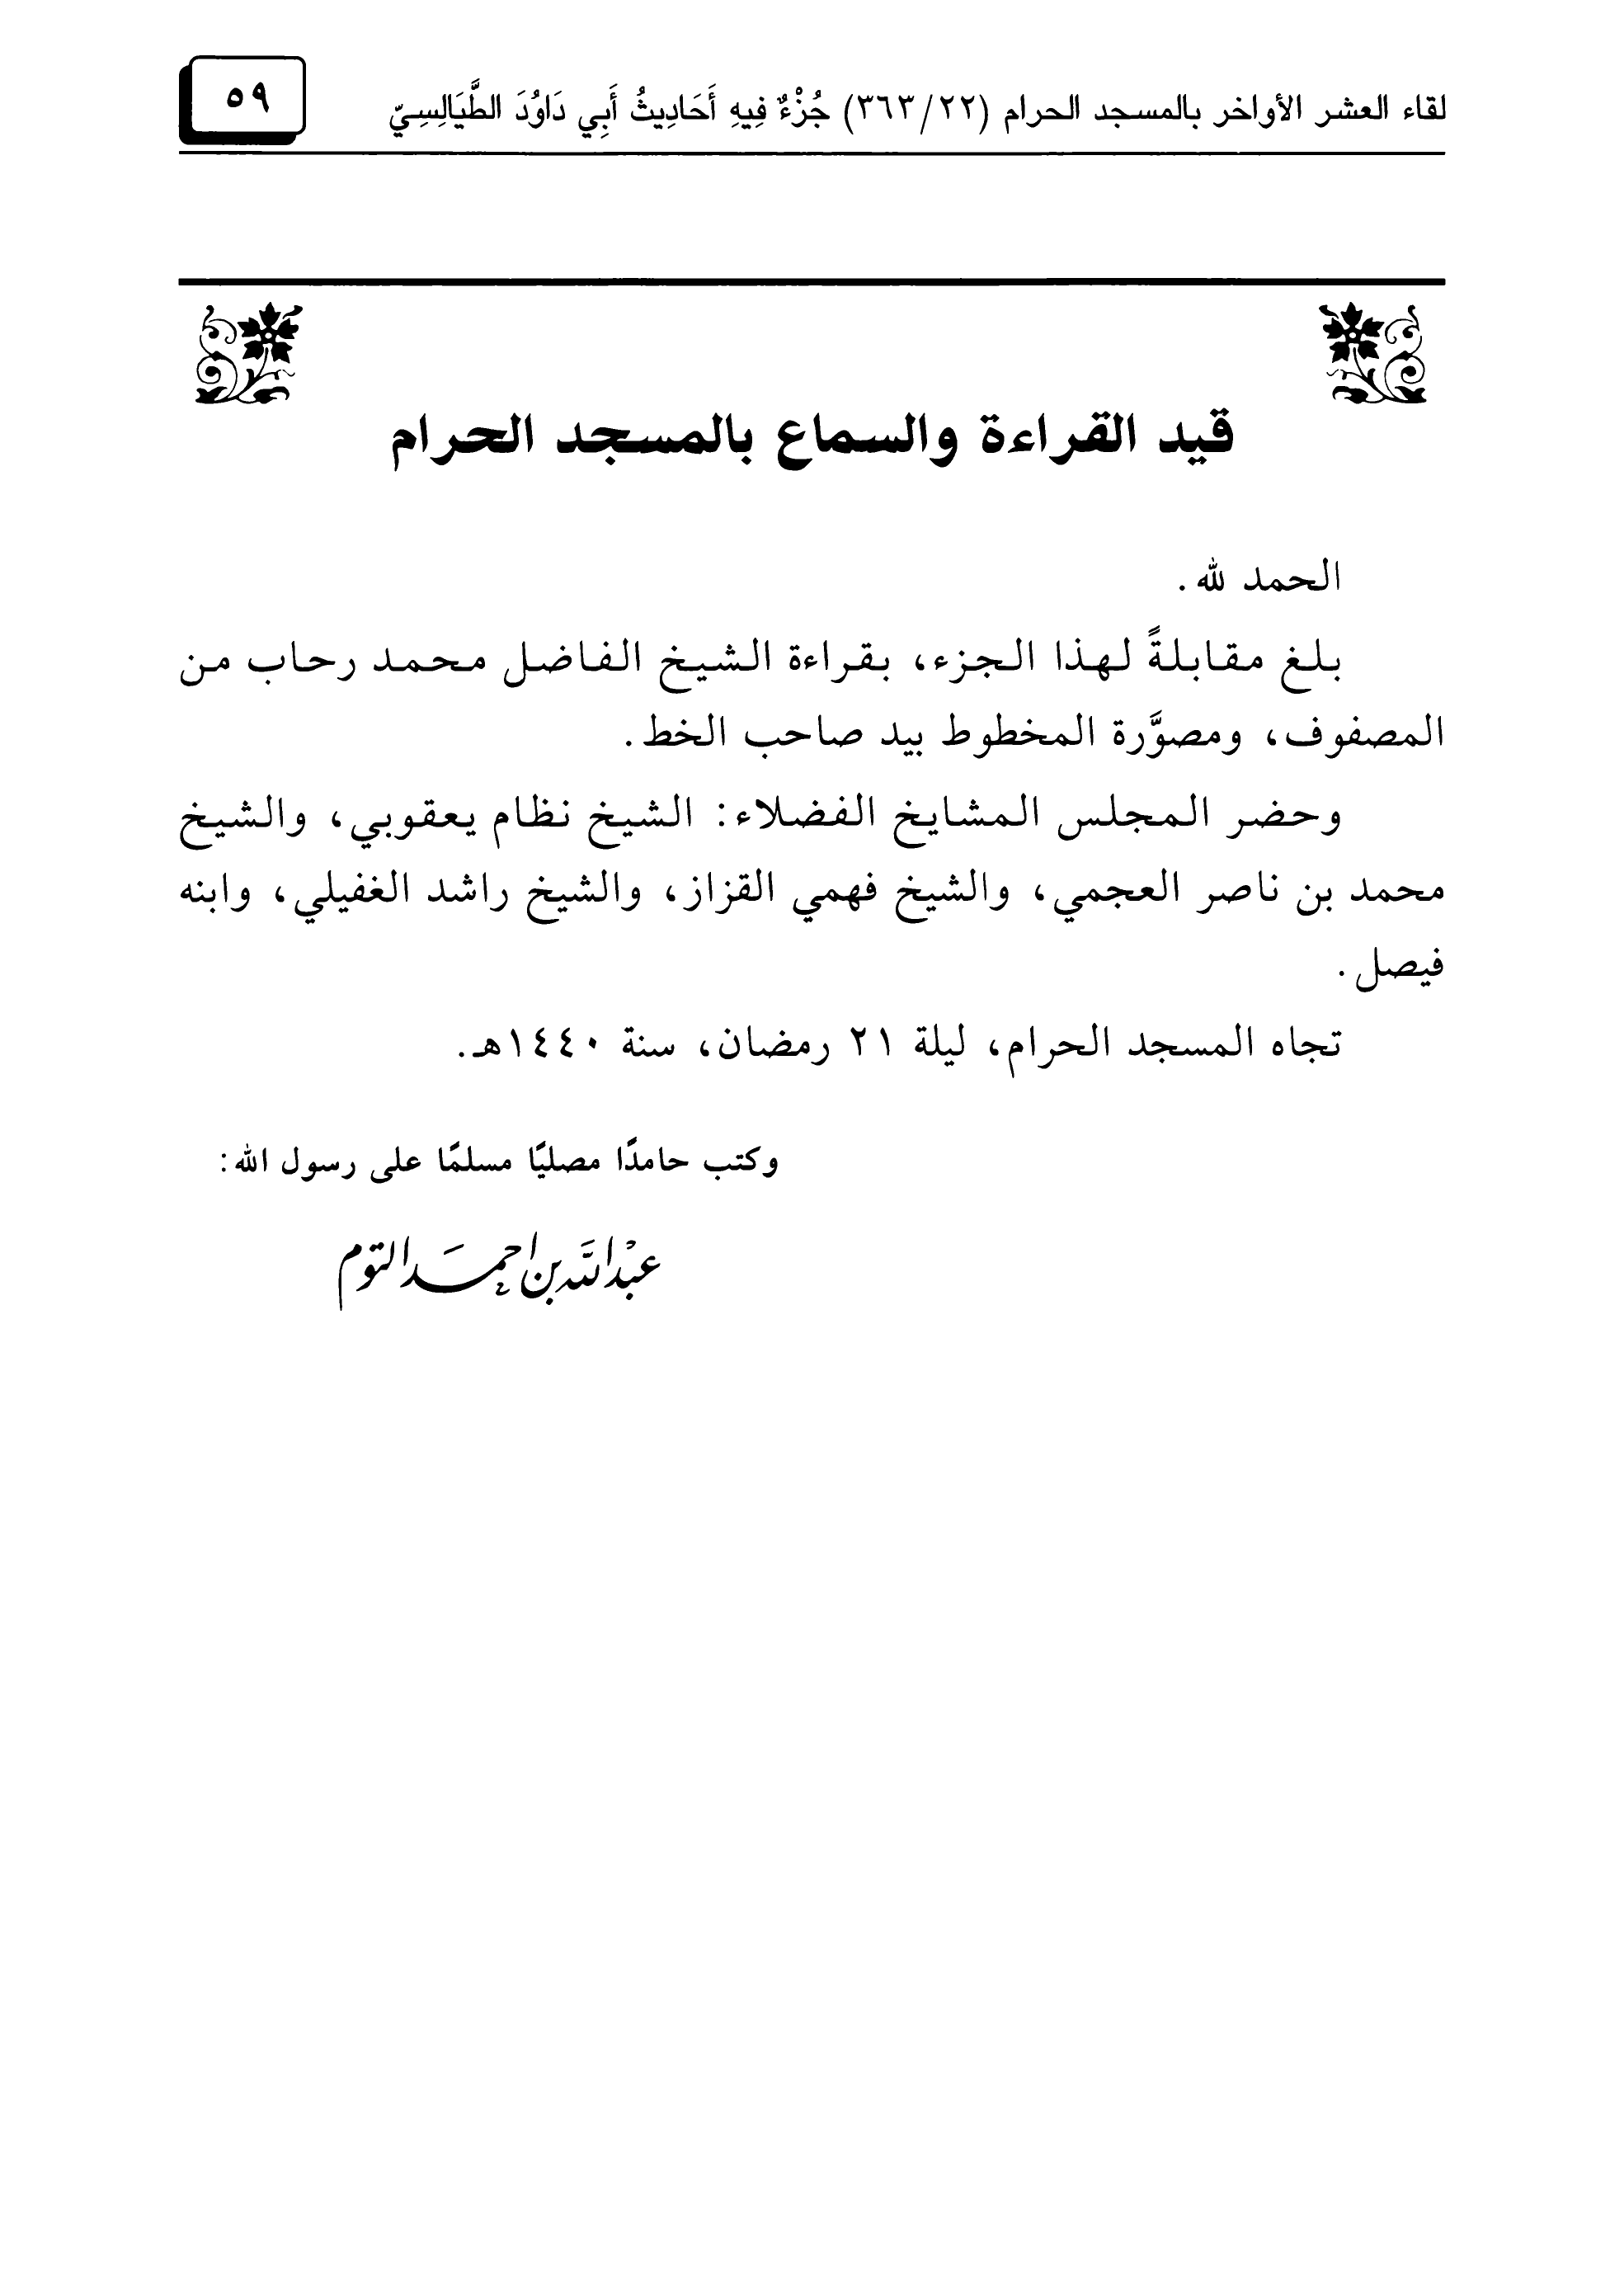 لقاء العشر الأواخر بالمسجد الحرام (٣٦٣/٢٢) جُزْءٌ فِيهِ أَحَادِيثُ أَبِي دَاوُدَ الطَّيَالِسِيّ
٥٩
قيد القراءة والسماع بالمسجد الحرام
الحمد لله.
بلغ مقابلةً لهذا الجزء، بقراءة الشيخ الفاضل محمد رحاب من
المصفوف، ومصوَّرة المخطوط بيد صاحب الخط.
وحضر المجلس المشايخ الفضلاء: الشيخ نظام يعقوبي، والشيخ
محمد بن ناصر العجمي، والشيخ فهمي القزاز، والشيخ راشد الغفيلي، وابنه
فيصل.
تجاه المسجد الحرام، ليلة ٢١ رمضان، سنة ١٤٤٠هـ.
وكتب حامدًا مصليًا مسلمًا على رسول الله:
عبْد الله بن احمَد التوم